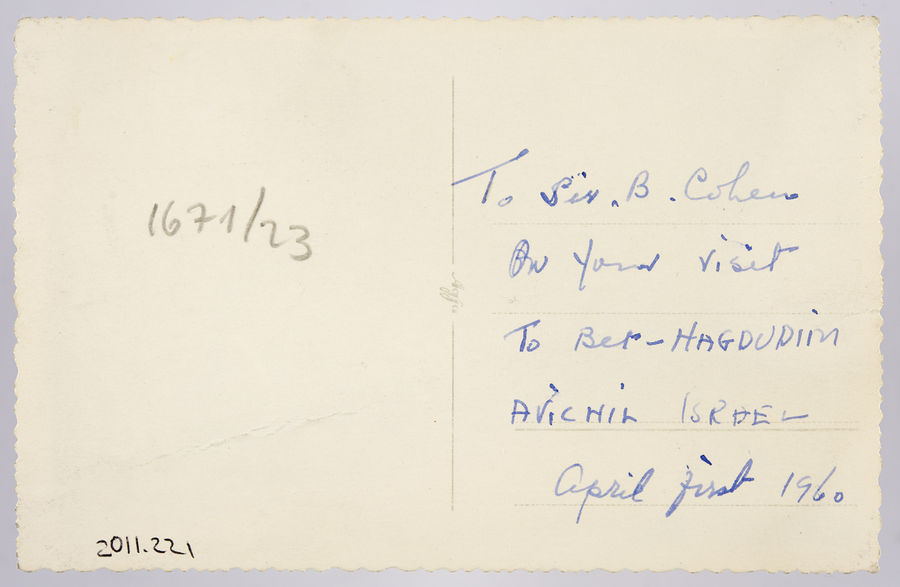 1671/23
To Sir. B. Cohen
On your visit
To Bet-HAGDUDIIM
AVICHIL ISRAEL
April first 1960
2011.221